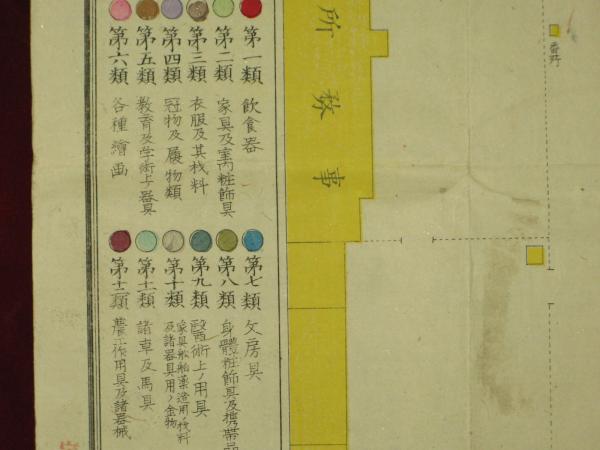 番所
事務所
第一類 飲食器
第二類 家具及室内粧飾具
第三類 衣服及其材料
第四類 冠物及履物類
第五類 教育及学術上ノ器具
第六類 各種繪画
第七類 文房具
第八類 身體粧飾具及携帯品
第九類 醫術上ノ用具
第十類 家具船舶築造用ノ材料
及諸器具用ノ金物
第十一類 諸車及馬具
第十二類 農工作用具及諸器械